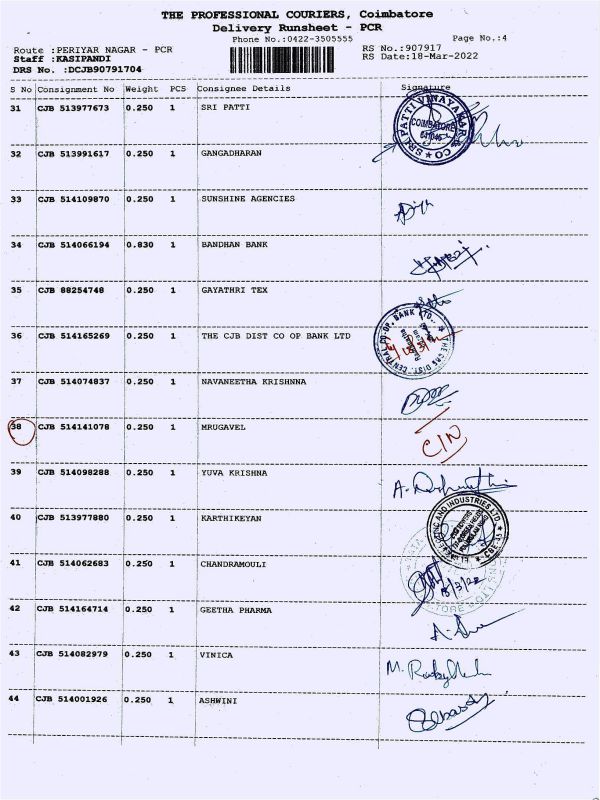 THE PROFESSIONAL COURIERS, Coimbatore
Delivery Runsheet - PCR
Phone No.:0422-3505555
Page No.:4
Route :PERIYAR NAGAR - PCR
RS No.:907917
Staff :KASIPANDI
RS Date:18-Mar-2022
DRS No. :DCJB90791704
S No Consignment No Weight PCS Consignee Details Signature
31 CJB 513977673 0.250 1 SRI PATTI
SRI PATTI VINAYAKAR CO
COIMBATORE
32 CJB 513991617 0.250 1 GANGADHARAN
33 CJB 514109870 0.250 1 SUNSHINE AGENCIES
34 CJB 514066194 0.830 1 BANDHAN BANK
35 CJB 88254748 0.250 1 GAYATHRI TEX
36 CJB 514165269 0.250 1 THE CJB DIST CO OP BANK LTD
37 CJB 514074837 0.250 1 NAVANEETHA KRISHNNA
38 CJB 514141078 0.250 1 MRUGAVEL
C/N
39 CJB 514098288 0.250 1 YUVA KRISHNA
40 CJB 513977880 0.250 1 KARTHIKEYAN
41 CJB 514062683 0.250 1 CHANDRAMOULI
42 CJB 514164714 0.250 1 GEETHA PHARMA
43 CJB 514082979 0.250 1 VINICA
44 CJB 514001926 0.250 1 ASHWINI